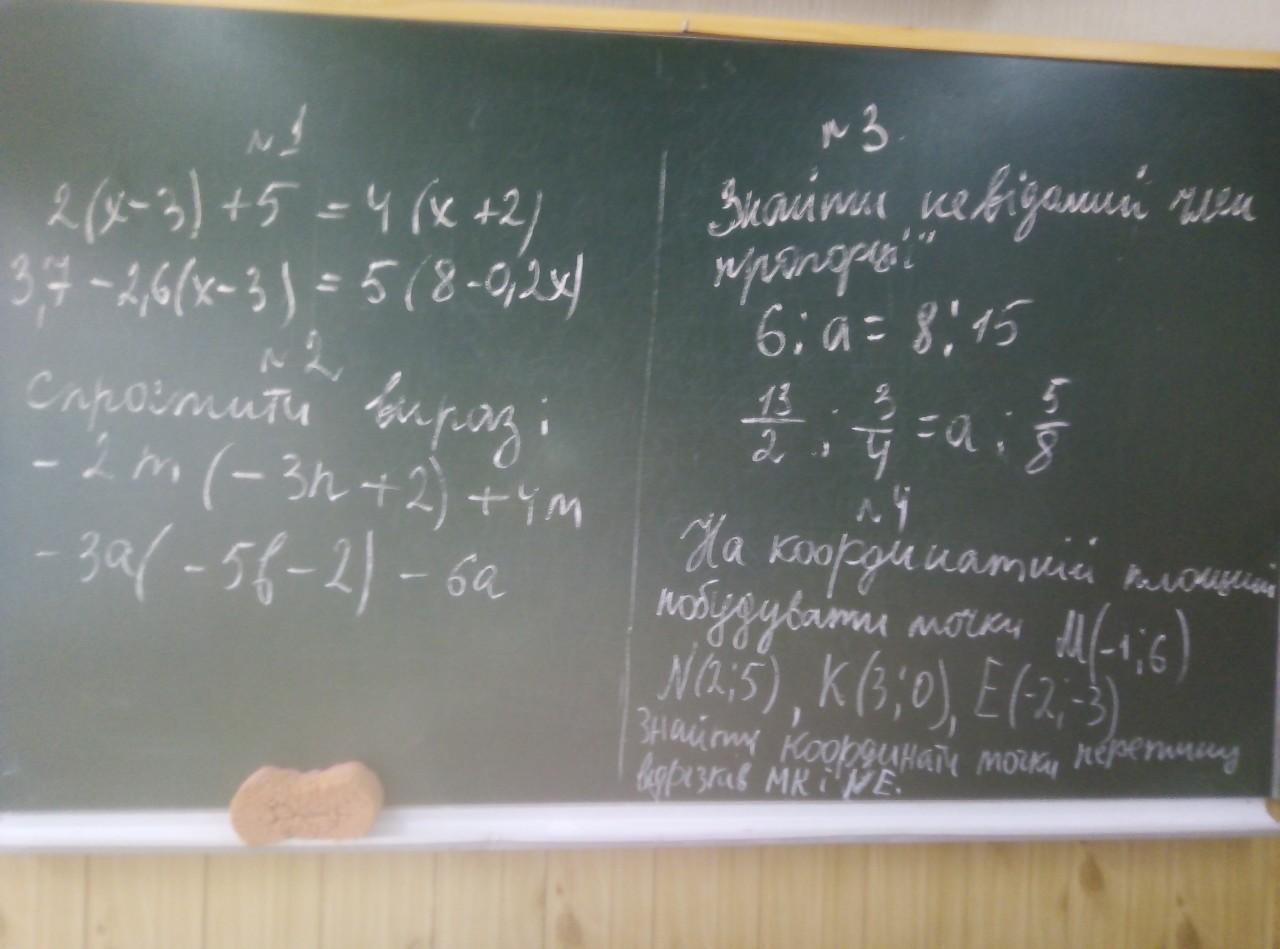 n 1
2(x-3)+5 = 4(x+2)
3,7 - 2,6(x-3) = 5(8-0,2x)
n 2
Спростити вираз:
- 2m (-3n+2) + 4m
- 3a( - 5b - 2) - 6a
n 3.
Знайти невідомий член
пропорції
6 : a = 8 : 15
13/2 : 3/4 = a : 5/8
n 4
На координатній площині
побудувати точки M(-1;6)
N(2;5), K(3;0), E(-2;-3)
Знайти координати точки перетину
відрізків MK і NE.